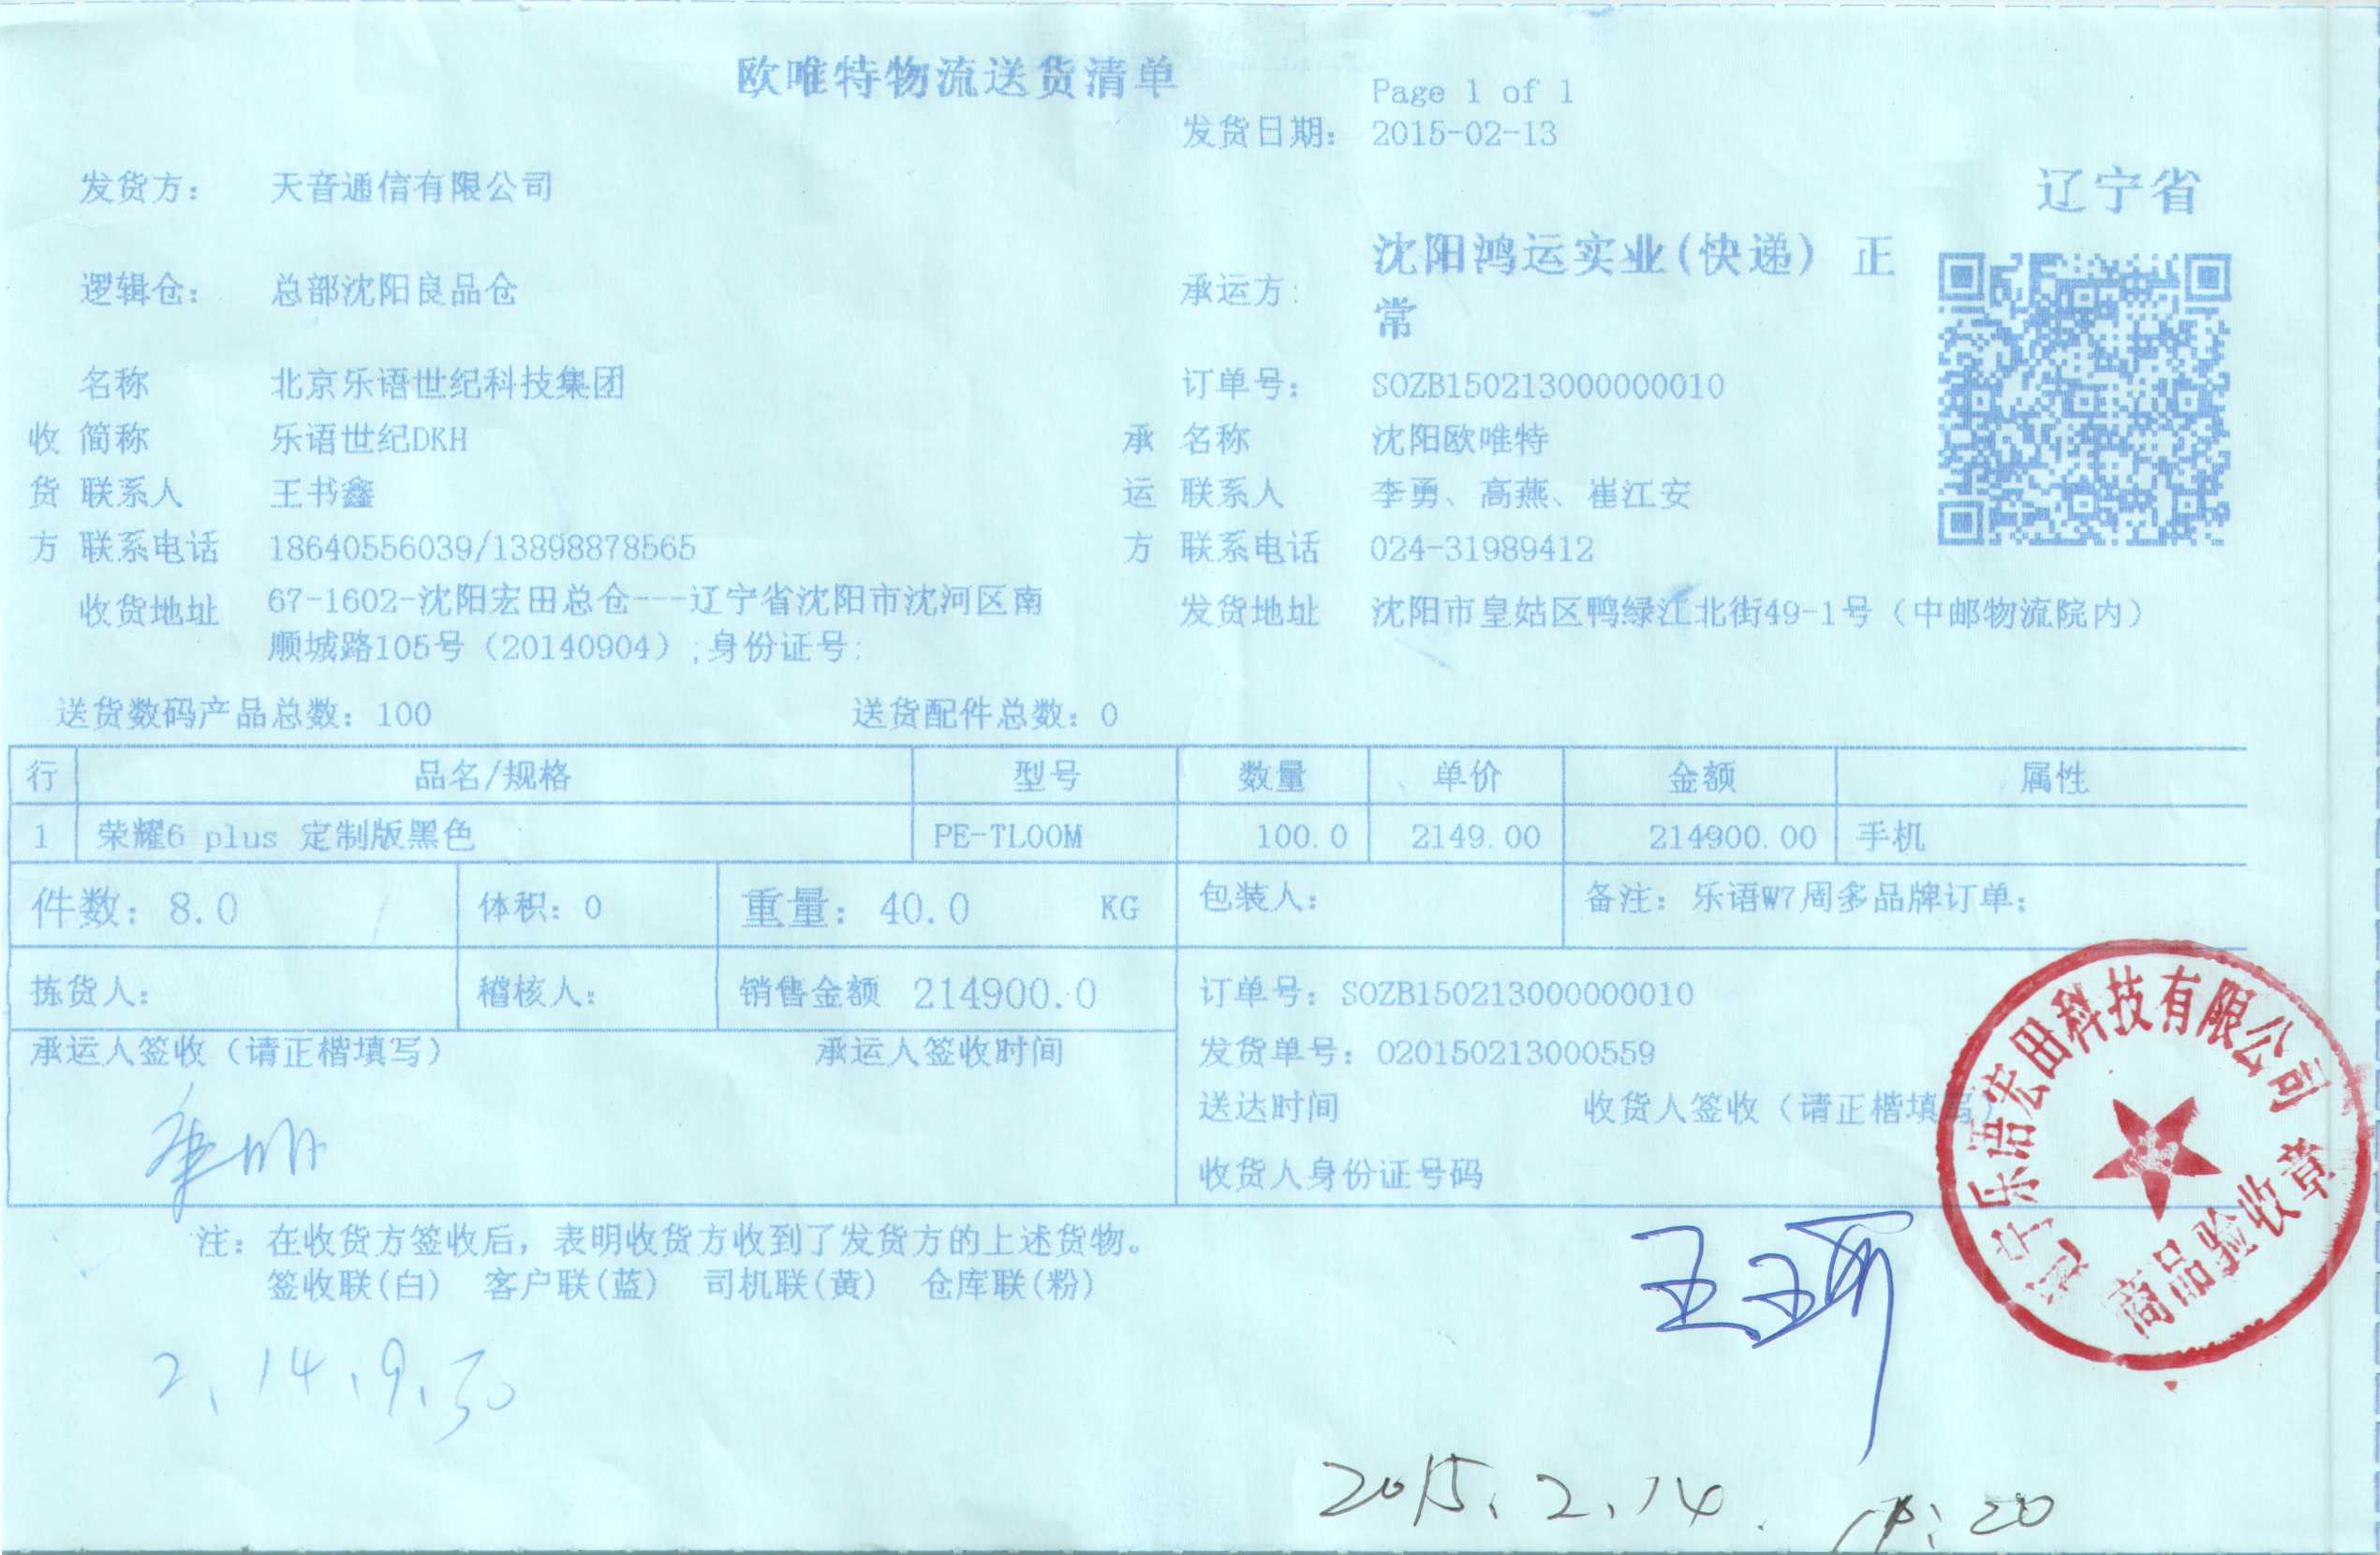 欧唯特物流送货清单
Page 1 of 1
发货日期: 2015-02-13
发货方: 天音通信有限公司
辽宁省
逻辑仓: 总部沈阳良品仓
承运方: 沈阳鸿运实业(快递) 正
常
名称 北京乐语世纪科技集团
订单号: SOZB150213000000010
收 简称 乐语世纪DKH
承 名称 沈阳欧唯特
货 联系人 王书鑫
运 联系人 李勇、高燕、崔江安
方 联系电话 18640556039/13898878565
方 联系电话 024-31989412
收货地址 67-1602-沈阳宏田总仓---辽宁省沈阳市沈河区南
顺城路105号（20140904）;身份证号:
发货地址 沈阳市皇姑区鸭绿江北街49-1号（中邮物流院内）
送货数码产品总数: 100 送货配件总数: 0
行 品名/规格 型号 数量 单价 金额 属性
1 荣耀6 plus 定制版黑色 PE-TL00M 100.0 2149.00 214900.00 手机
件数: 8.0 体积: 0 重量: 40.0 KG 包装人: 备注: 乐语W7周多品牌订单;
拣货人: 稽核人: 销售金额 214900.0 订单号: SOZB150213000000010
承运人签收（请正楷填写） 承运人签收时间
发货单号: 020150213000559
送达时间 收货人签收（请正楷填写）
收货人身份证号码
辽宁乐语宏田科技有限公司
商品验收章
注: 在收货方签收后，表明收货方收到了发货方的上述货物。
签收联(白) 客户联(蓝) 司机联(黄) 仓库联(粉)
2、14、9、30
2015、2、14.